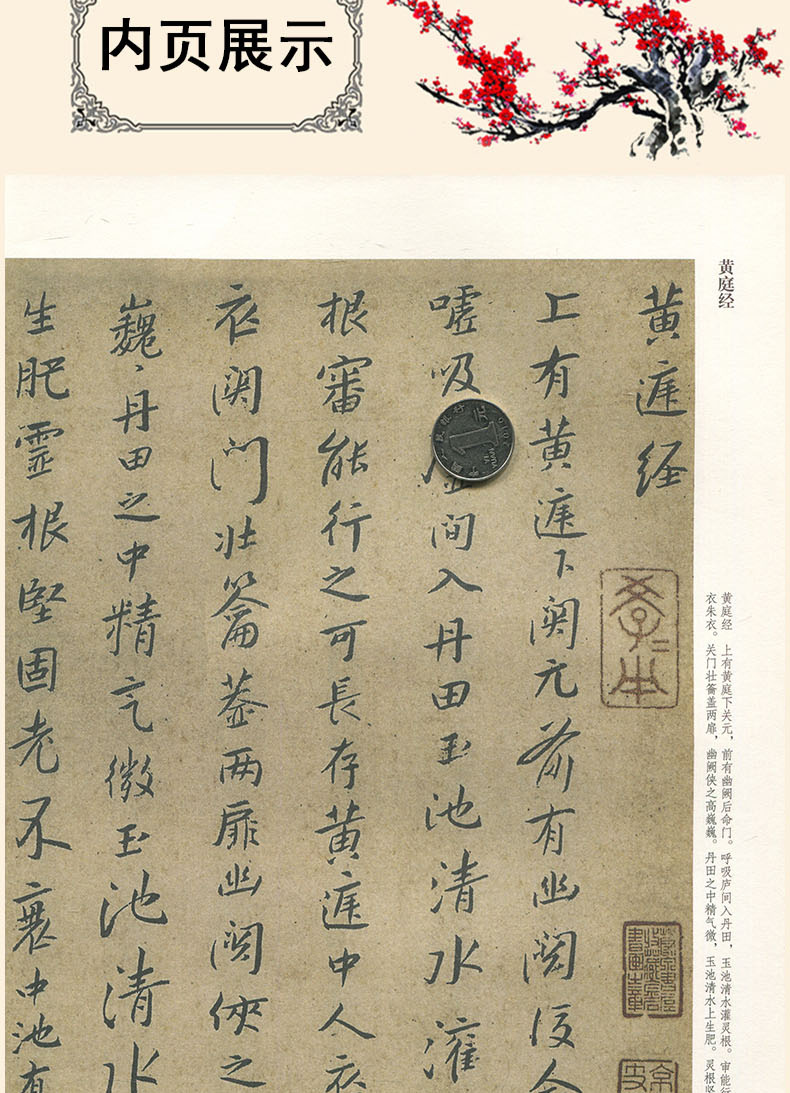 内页展示
黄庭经
黄庭经 上有黄庭下关元，前有幽阙后命门。呼吸庐间入丹田，玉池清水灌灵根。审能行
衣朱衣。关门壮籥盖两扉，幽阙侠之高巍巍。丹田之中精气微，玉池清水上生肥。灵根坚
黄庭经
上有黄庭下関元前有幽闕後命
嘘吸廬间入丹田玉池清水灌
根審能行之可長存黄庭中人衣
衣関门壮籥蓋两扉幽闕俠之
巍〻丹田之中精气微玉池清水
生肥靈根堅固老不衰中池有
1元